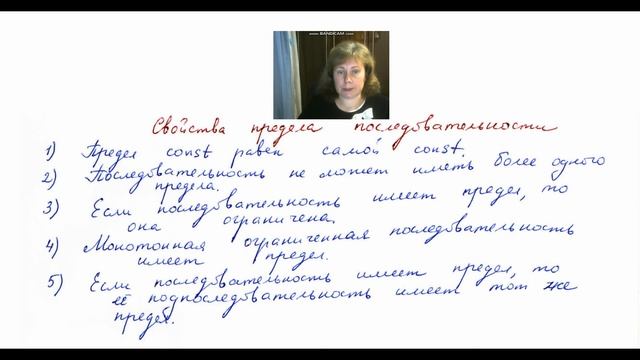 www.BANDICAM.com
Свойства предела последовательности
1) Предел const равен самой const.
2) Последовательность не может иметь более одного
предела.
3) Если последовательность имеет предел, то
она ограничена.
4) Монотонная ограниченная последовательность
имеет предел.
5) Если последовательность имеет предел, то
её подпоследовательность имеет тот же
предел.